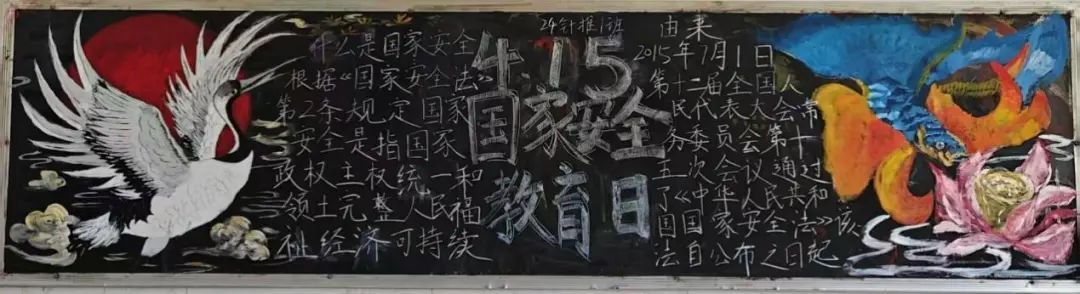 24针推1班
什么是国家安全
根据《国家安全法》
第2条规定国家
安全是指国家
政权主权统一和
领土完整人民福
祉经济可持续
4.15
国家安全
教育日
由来
2015年7月1日
第十二届全国人
民代表大会常
务委员会第十
五次会议通过
了《中华人民共和
国国家安全法》该
法自公布之日起